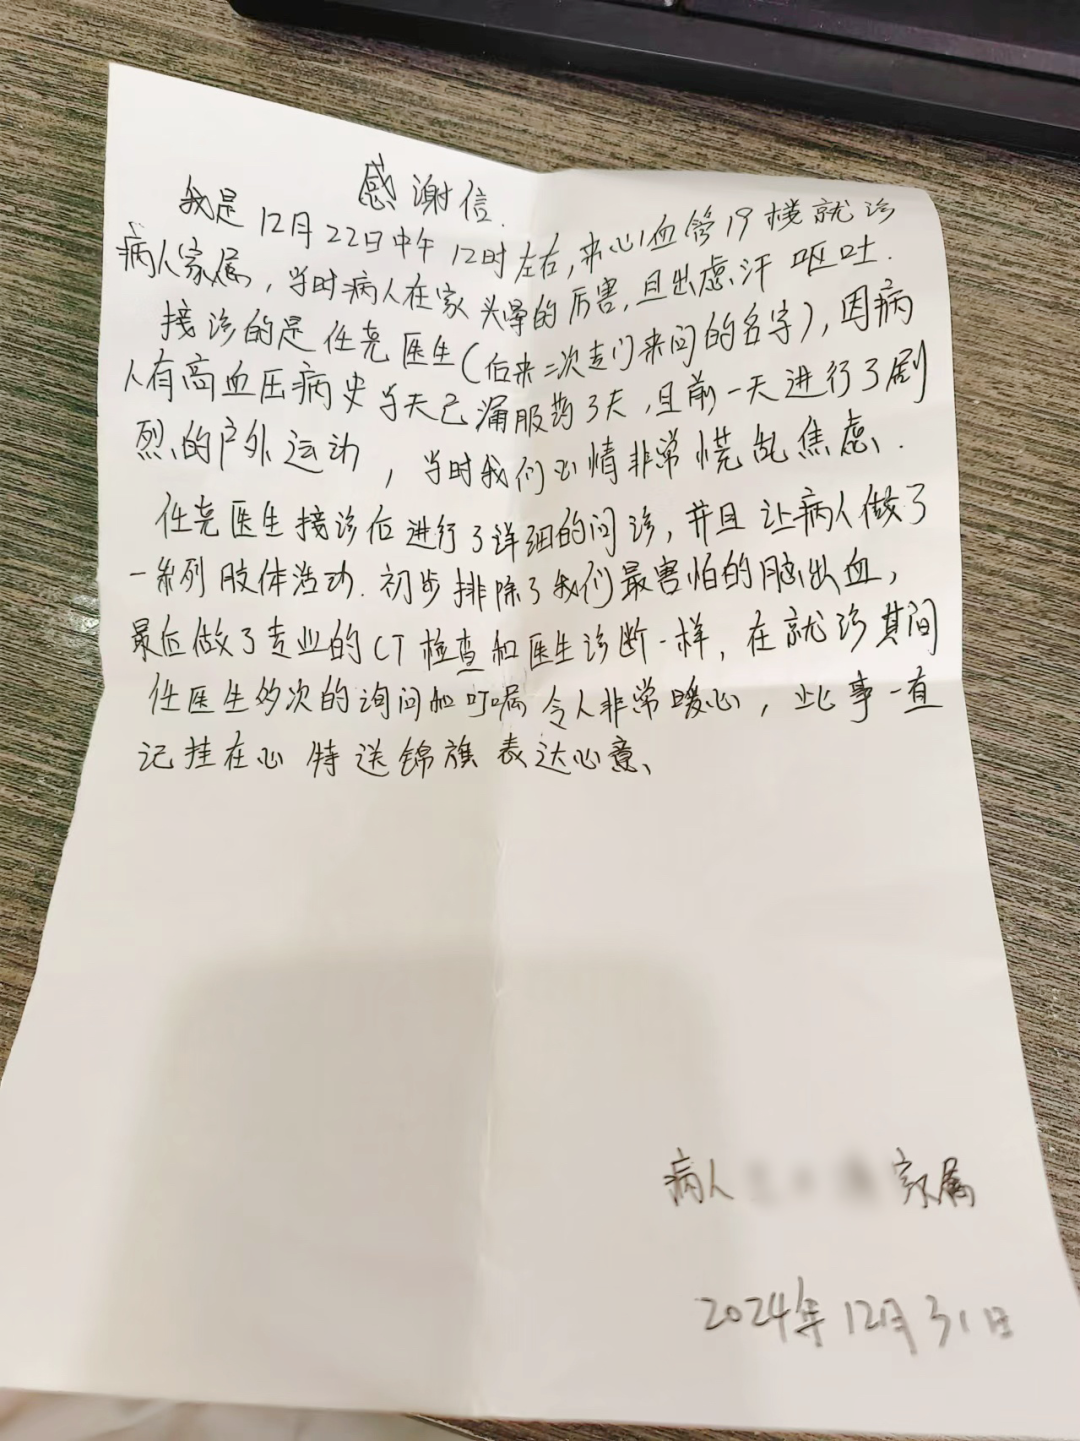 感谢信.
我是12月22日中午12时左右,来心血管19楼就诊
病人家属,当时病人在家头晕的厉害,且出虚汗 呕吐.
接诊的是任尧医生(后来二次专门来问的名字),因病
人有高血压病史当天已漏服药3天,且前一天进行了剧
烈的户外运动,当时我们心情非常慌乱焦虑、.
任尧医生接诊后进行了详细的问诊,并且让病人做了
一系列肢体活动.初步排除了我们最害怕的脑出血,
最后做了专业的CT检查和医生诊断一样,在就诊其间
任医生多次的询问和叮嘱令人非常暖心,此事一直
记挂在心 特送锦旗表达心意、
病人 家属
2024年12月31日